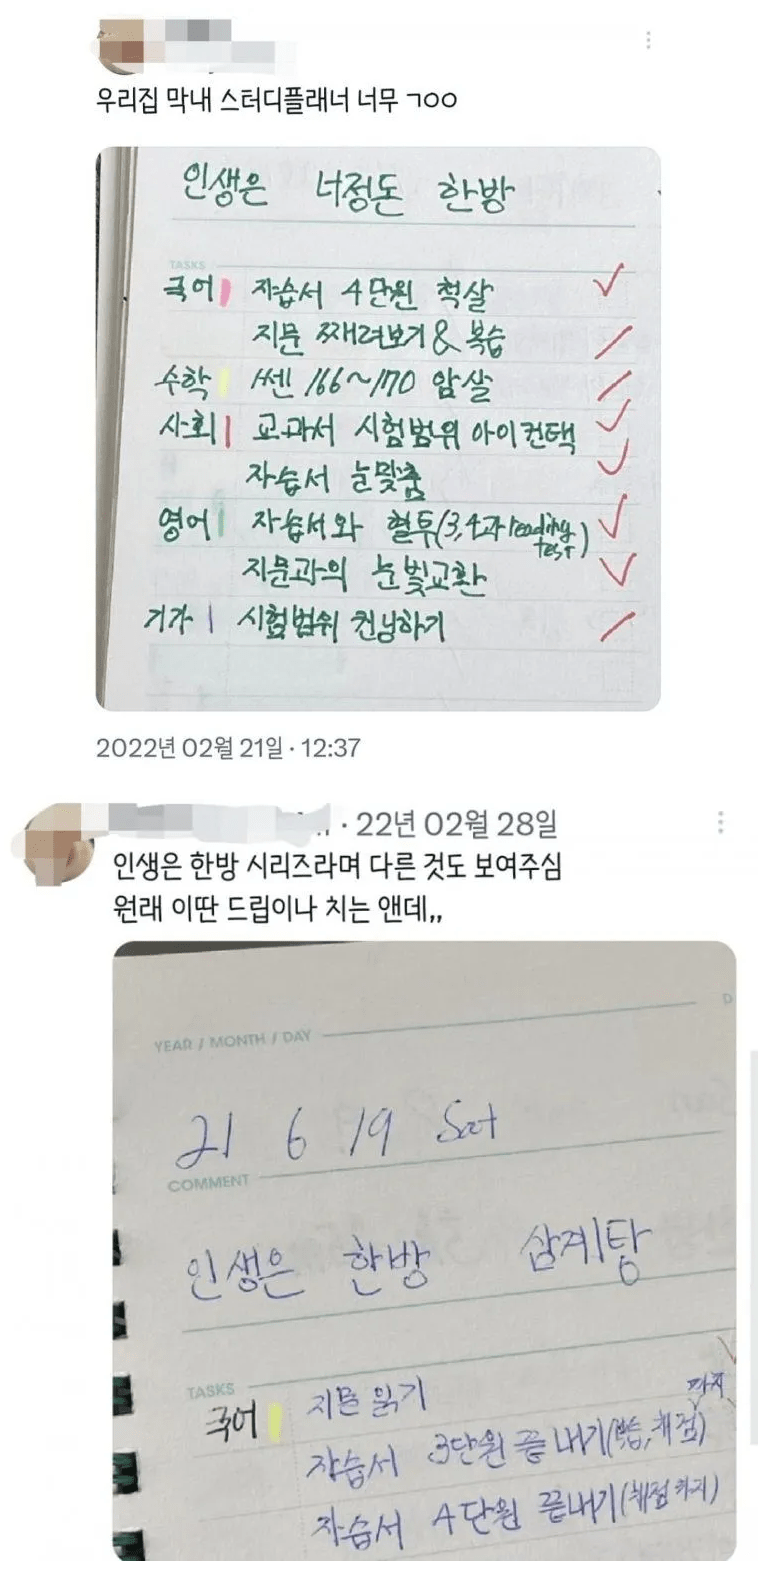 우리집 막내 스터디플래너 너무 ㄱㅇㅇ
인생은 너정돈 한방
TASKS
국어 자습서 4단원 척살
지문 째려보기 & 복습
수학 쎈 166~170 암살
사회 교과서 시험범위 아이컨택
자습서 눈맞춤
영어 자습서와 혈투(3,4과 reading test)
지문과의 눈빛교환
기가 시험범위 컨닝하기
2022년 02월 21일 · 12:37
· 22년 02월 28일
인생은 한방 시리즈라며 다른 것도 보여주심
원래 이딴 드립이나 치는 앤데,,
D
YEAR / MONTH / DAY
21 6 19 Sat
COMMENT
인생은 한방 삼계탕
TASKS
국어 지문 읽기
자습서 3단원 끝내기(복습,채점)
자습서 4단원 끝내기(채점까지)